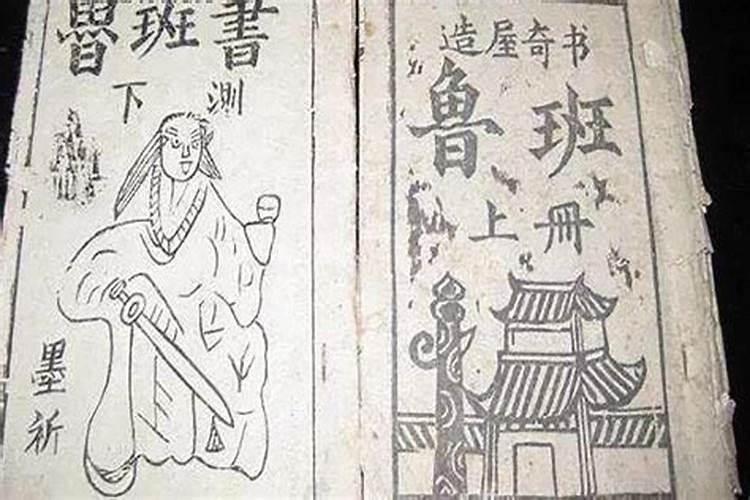 魯班書
下测
墨祈
造屋奇书
魯班
上册